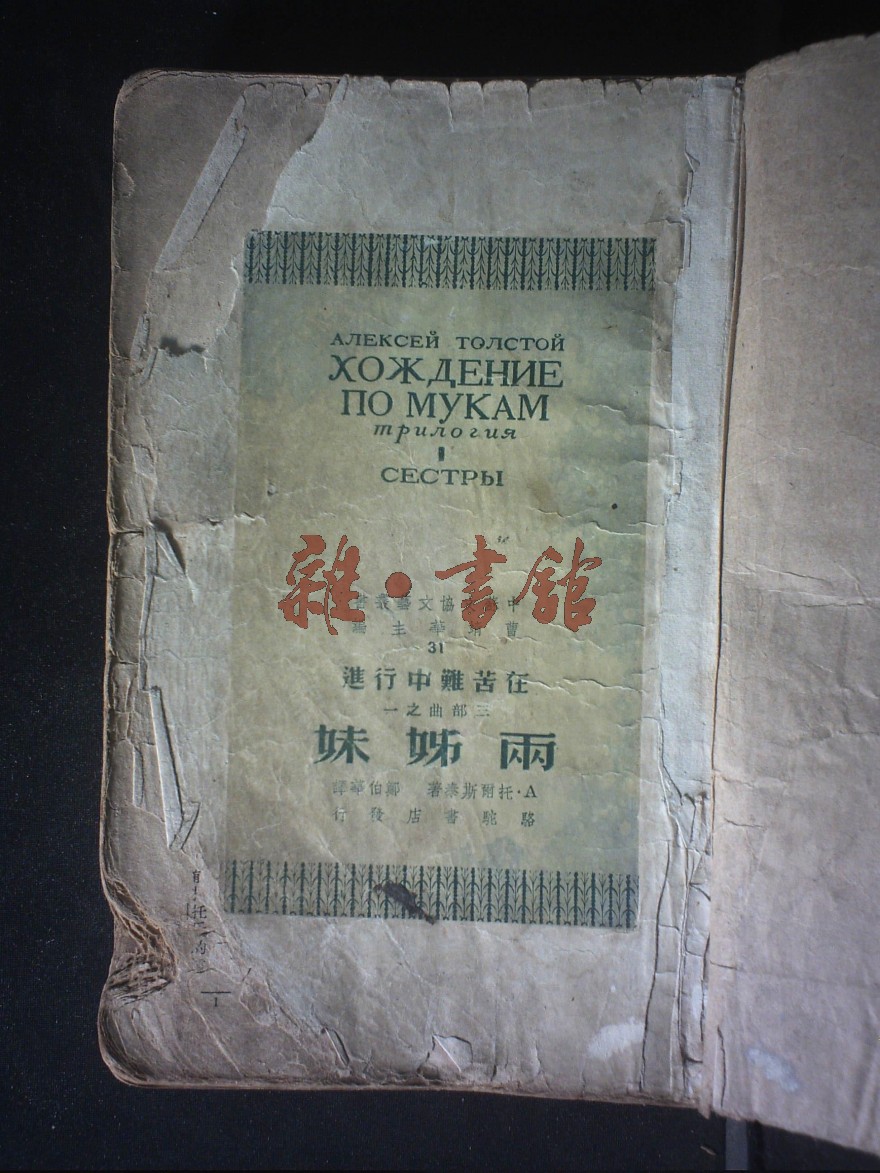 АЛЕКСЕЙ ТОЛСТОЙ
ХОЖДЕНИЕ
ПО МУКАМ
трилогия
I
СЕСТРЫ
雜·書館
中蘇文協文藝叢書
曹靖華主編
31
在苦難中行進
三部曲之一
兩姊妹
A·托爾斯泰著 鄭伯華譯
駱駝書店發行